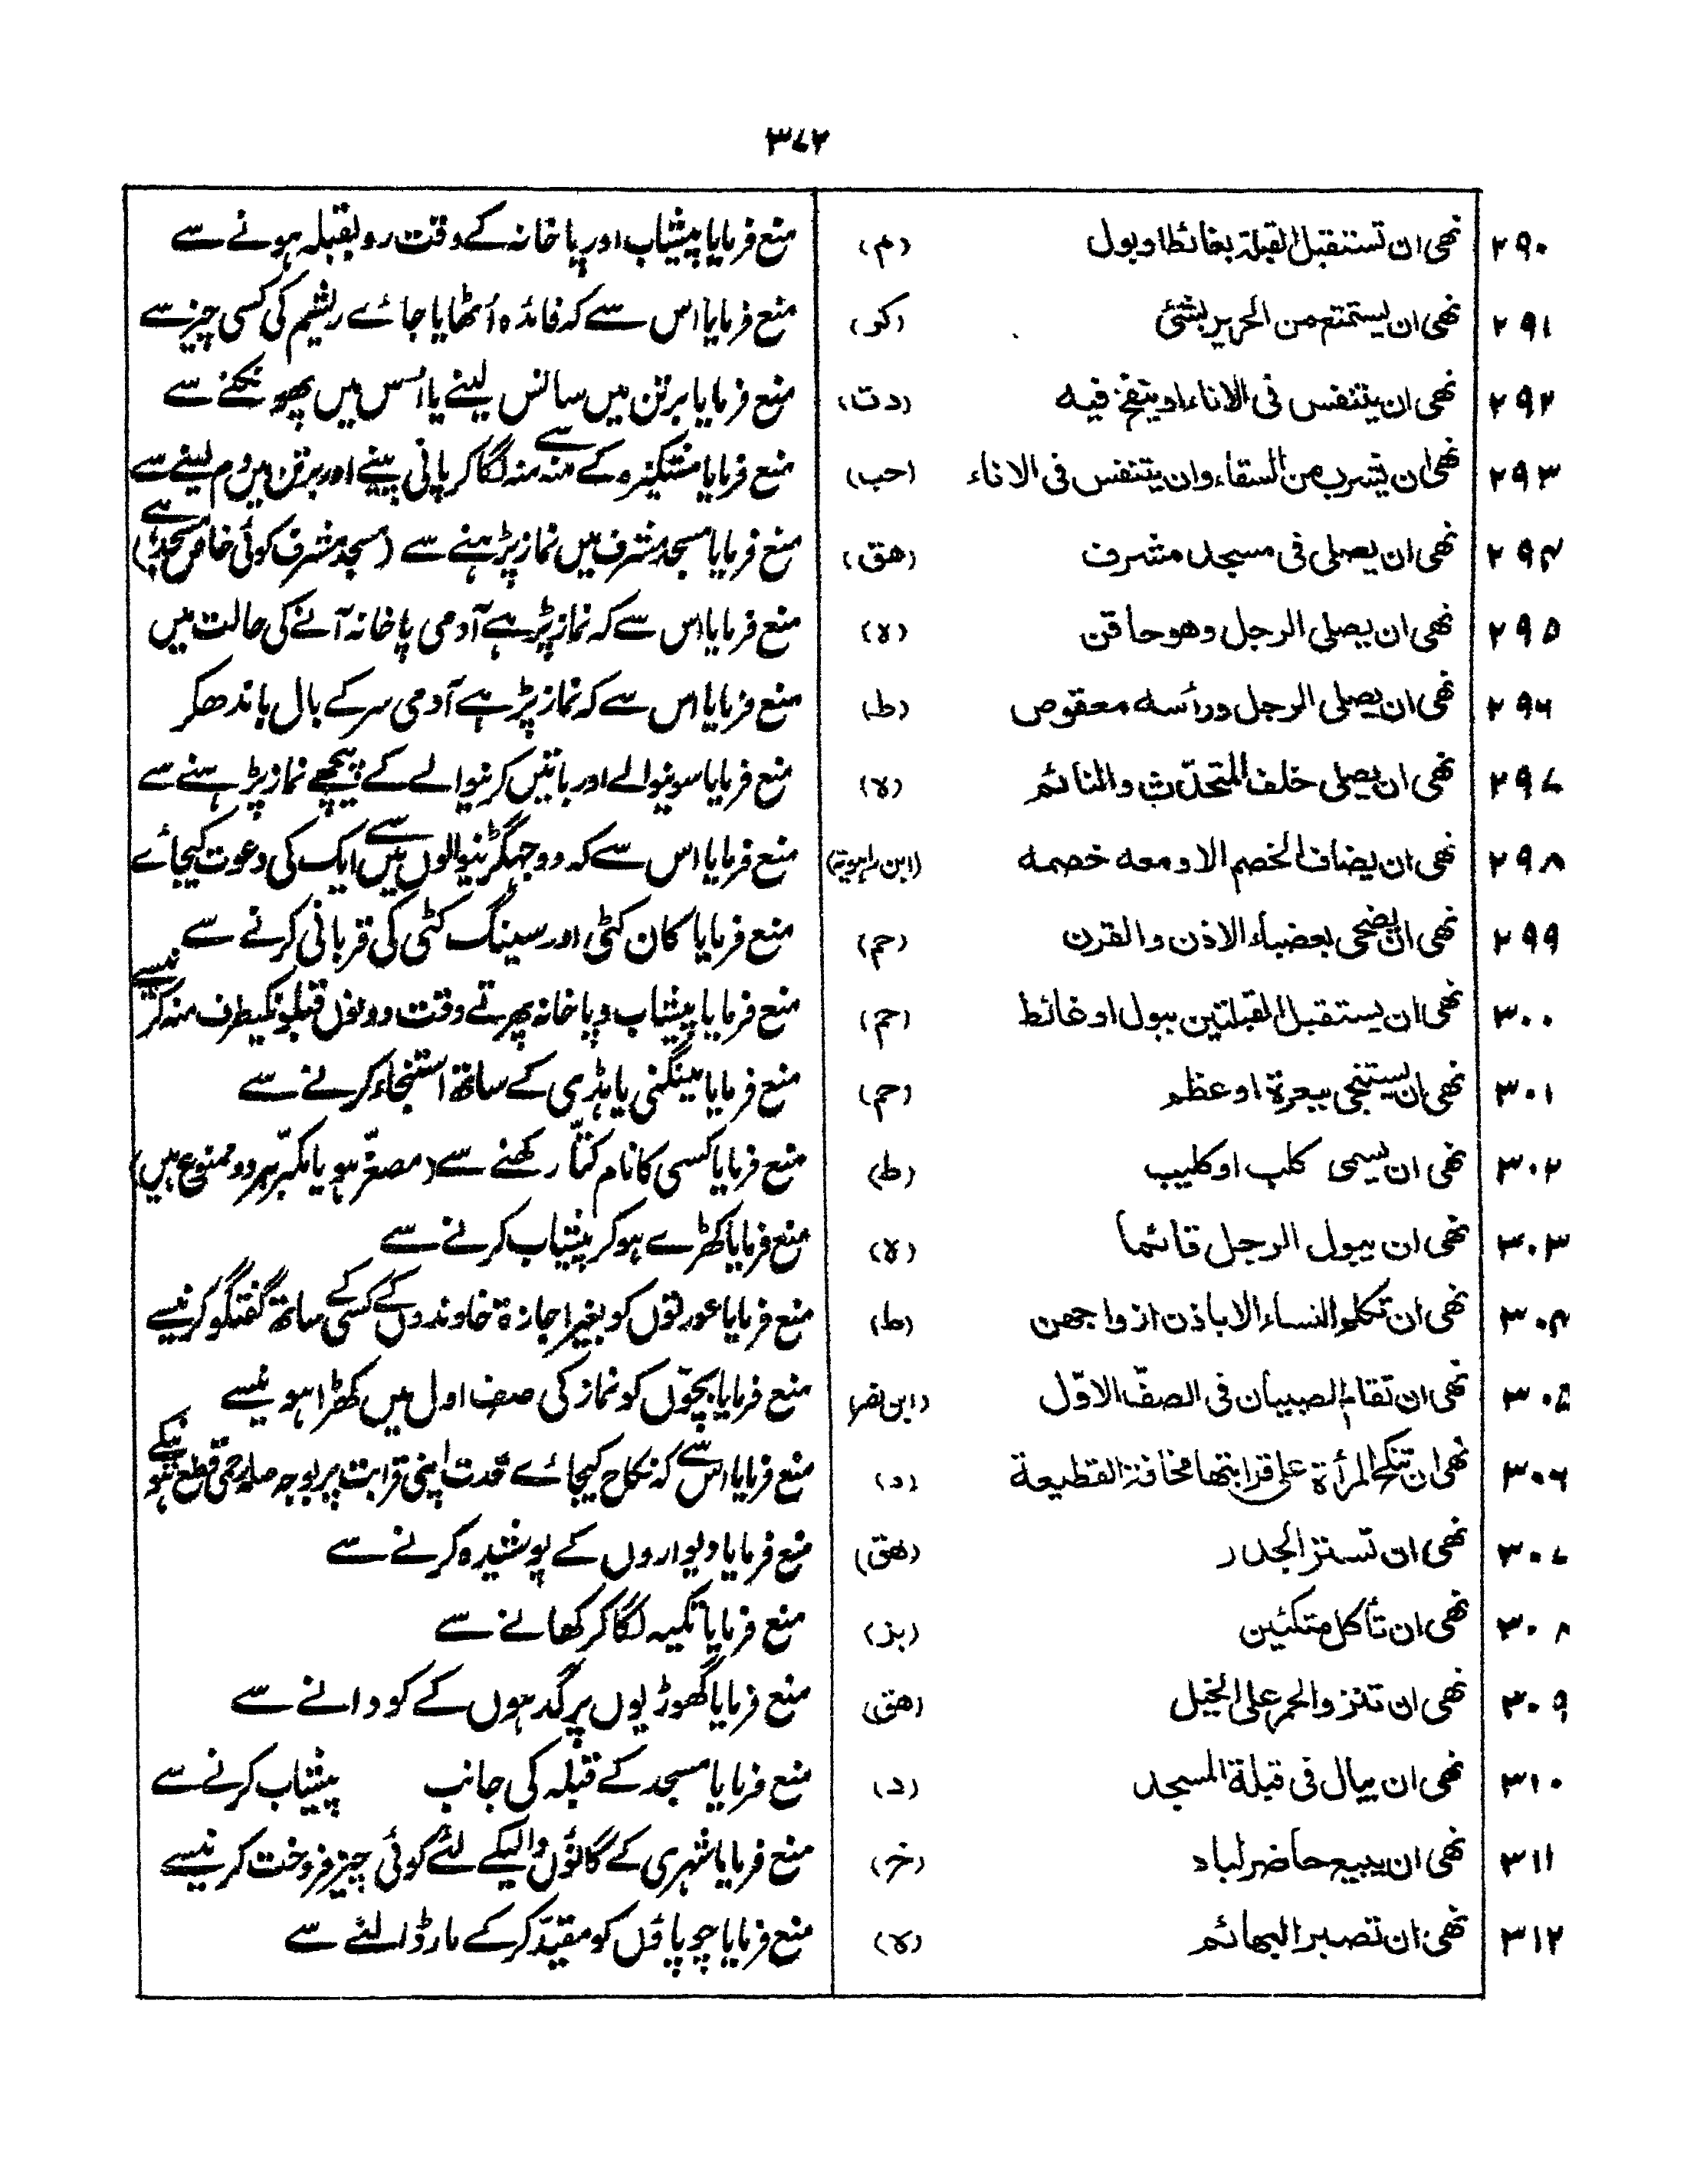 ۳۷۲
۲۹۰ نھی ان تستقبل القبلۃ بغائط او بول (م) منع فرمایا پیشاب اور پاخانہ کے وقت رو بقبلہ ہونے سے
۲۹۱ نھی ان یستمتع من الحریر بشئی (کر) منع فرمایا اس سے کہ فائدہ اُٹھایا جائے ریشم کی کسی چیز سے
۲۹۲ نھی ان یتنفس فی الاناء او ینفخ فیہ (دت) منع فرمایا برتن میں سانس لینے یا اس میں پھونکنے سے
۲۹۳ نھی ان یشرب من السقاء وان یتنفس فی الاناء (حب) منع فرمایا مشکیزہ کے منہ سے منہ لگا کر پانی پینے اور برتن میں دم لینے سے
۲۹۴ نھی ان یصلی فی مسجد مشرف (ھق) منع فرمایا مسجد مشرف میں نماز پڑہنے سے (مسجد مشرف کوئی خاص مسجد ہے)
۲۹۵ نھی ان یصلی الرجل وھو حاقن (ہ) منع فرمایا اس سے کہ نماز پڑہے آدمی پاخانہ آنے کی حالت میں
۲۹۶ نھی ان یصلی الرجل ورأسہ معقوص (ط) منع فرمایا اس سے کہ نماز پڑہے آدمی سر کے بال باندھکر
۲۹۷ نھی ان یصلی خلف المتحدّث والنائم (ہ) منع فرمایا سونیوالے اور باتیں کرنیوالے کے پیچھے نماز پڑہنے سے
۲۹۸ نھی ان یضاف الخصم الا ومعہ خصمہ (ابن راہویۃ) منع فرمایا اس سے کہ دو جہگڑنیوالوں میں سے ایک کی دعوت کیجائے
۲۹۹ نھی ان یضحی بعضباء الاذن والقرن (حم) منع فرمایا کان کٹی اور سینگ کٹی کی قربانی کرنے سے
۳۰۰ نھی ان یستقبل القبلتین ببول او غائط (حم) منع فرمایا پیشاب و پاخانہ پھرتے وقت دونوں قبلونکیطرف منہ کرنیسے
۳۰۱ نھی ان یستنجی ببعرۃ او عظم (حم) منع فرمایا مینگنی یا ہڈی کے ساتھ استنجاء کرنے سے
۳۰۲ نھی ان یسمی کلب او کلیب (ط) منع فرمایا کسی کا نام کتّا رکھنے سے (مصغّر ہو یا مکبّر ہر دو ممنوع ہیں)
۳۰۳ نھی ان یبول الرجل قائما (ہ) منع فرمایا کھڑے ہو کر پیشاب کرنے سے
۳۰۴ نھی ان تکلم النساء الا باذن ازواجھن (ط) منع فرمایا عورتوں کو بغیر اجازۃ خاوندوں کے کسی کے ساتھ گفتگو کرنیسے
۳۰۵ نھی ان تقام الصبیان فی الصفّ الاوّل (ابن نصر) منع فرمایا بچوّں کو نماز کی صف اول میں کھڑا ہونیسے
۳۰۶ نھی ان تنکح المرأۃ علی قرابتھا مخافۃ القطیعۃ (د) منع فرمایا اس سے کہ نکاح کیجائے عورت اپنی قرابت پر بوجہ صلہ رحمی قطع ہونیکے
۳۰۷ نھی ان تستر الجدر (ھق) منع فرمایا دیواروں کے پوشیدہ کرنے سے
۳۰۸ نھی ان تأکل متکئین (بز) منع فرمایا تکیہ لگا کر کھانے سے
۳۰۹ نھی ان تنزوالحمر علی الخیل (ھق) منع فرمایا گھوڑیوں پر گدہوں کے کودانے سے
۳۱۰ نھی ان یبال فی قبلۃ المسجد (د) منع فرمایا مسجد کے قبلہ کی جانب پیشاب کرنے سے
۳۱۱ نھی ان یبیع حاضر لباد (خ) منع فرمایا شہری کے گاؤں والیکے لئے کوئی چیز فروخت کرنیسے
۳۱۲ نھی ان تصبر البھائم (ہ) منع فرمایا چوپاؤں کو مقیّد کر کے مارڈالنے سے